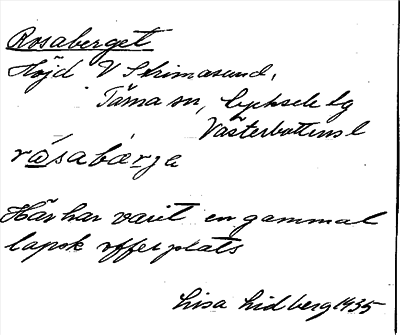 Rosaberget
Höjd V Strimasund,
Tärna sn, Lycksele lg
Västerbottens l
råsabærja
Här har varit en gammal
lapsk offerplats
Lisa Lidberg 1935